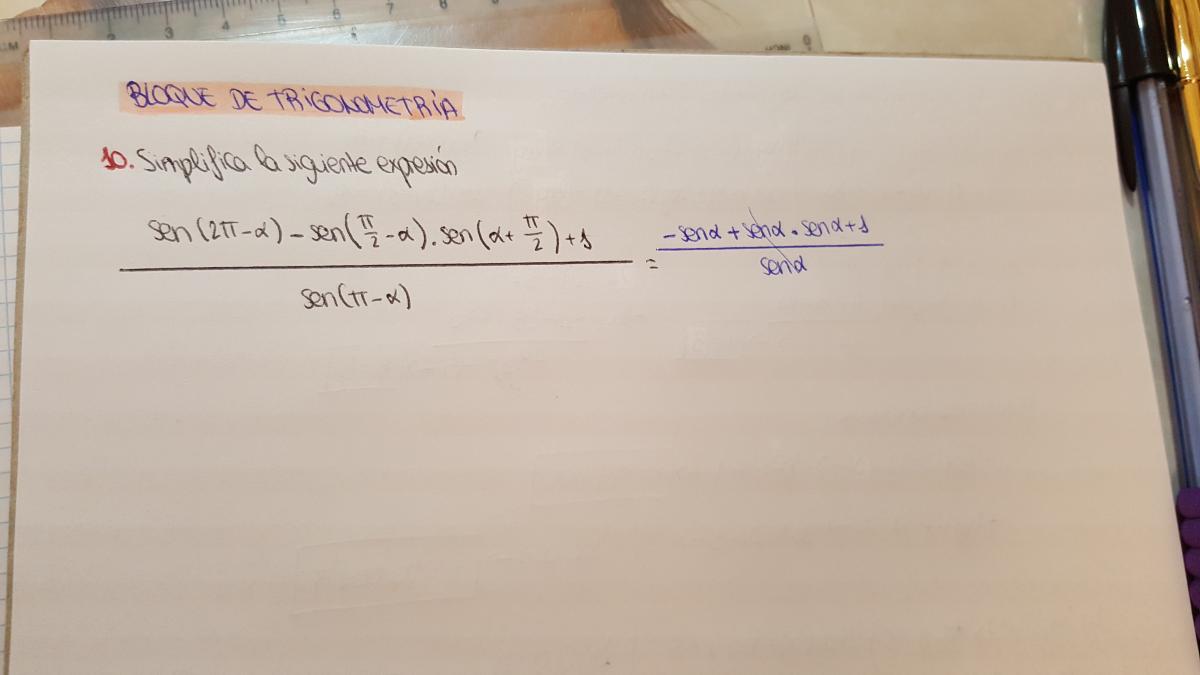 CM 1 2 3 4 5 6 7 8
BLOQUE DE TRIGONOMETRÍA
10. Simplifica la siguiente expresión
sen(2π-α) - sen(π/2 -α). sen(α+ π/2) +1 / sen(π-α) = -senα + senα . senα+1 / senα